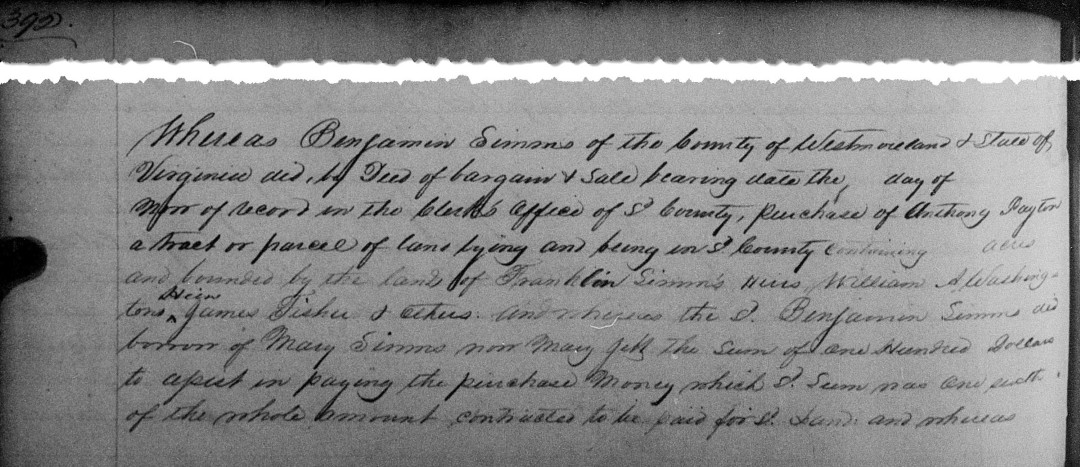 392.
Whereas Benjamin Simms of the County of Westmoreland & State of
Virginia did, by Deed of bargain & Sale bearing date the, day of
Now of record in the Clerk's Office of Sd County, purchase of Anthony Payton
a tract or parcel of land lying and being in Sd County containing acres
and bounded by the lands of Franklin Simms's Heirs, William A. Washing-
tons Heirs James Fisher & others. And whereas the Sd. Benjamin Simms did
borrow of Mary Simms now Mary Jett the Sum of One Hundred Dollars
to assist in paying the purchase Money which Sd. Sum was One sixth
of the whole amount contracted to be paid for Sd. Land: and whereas